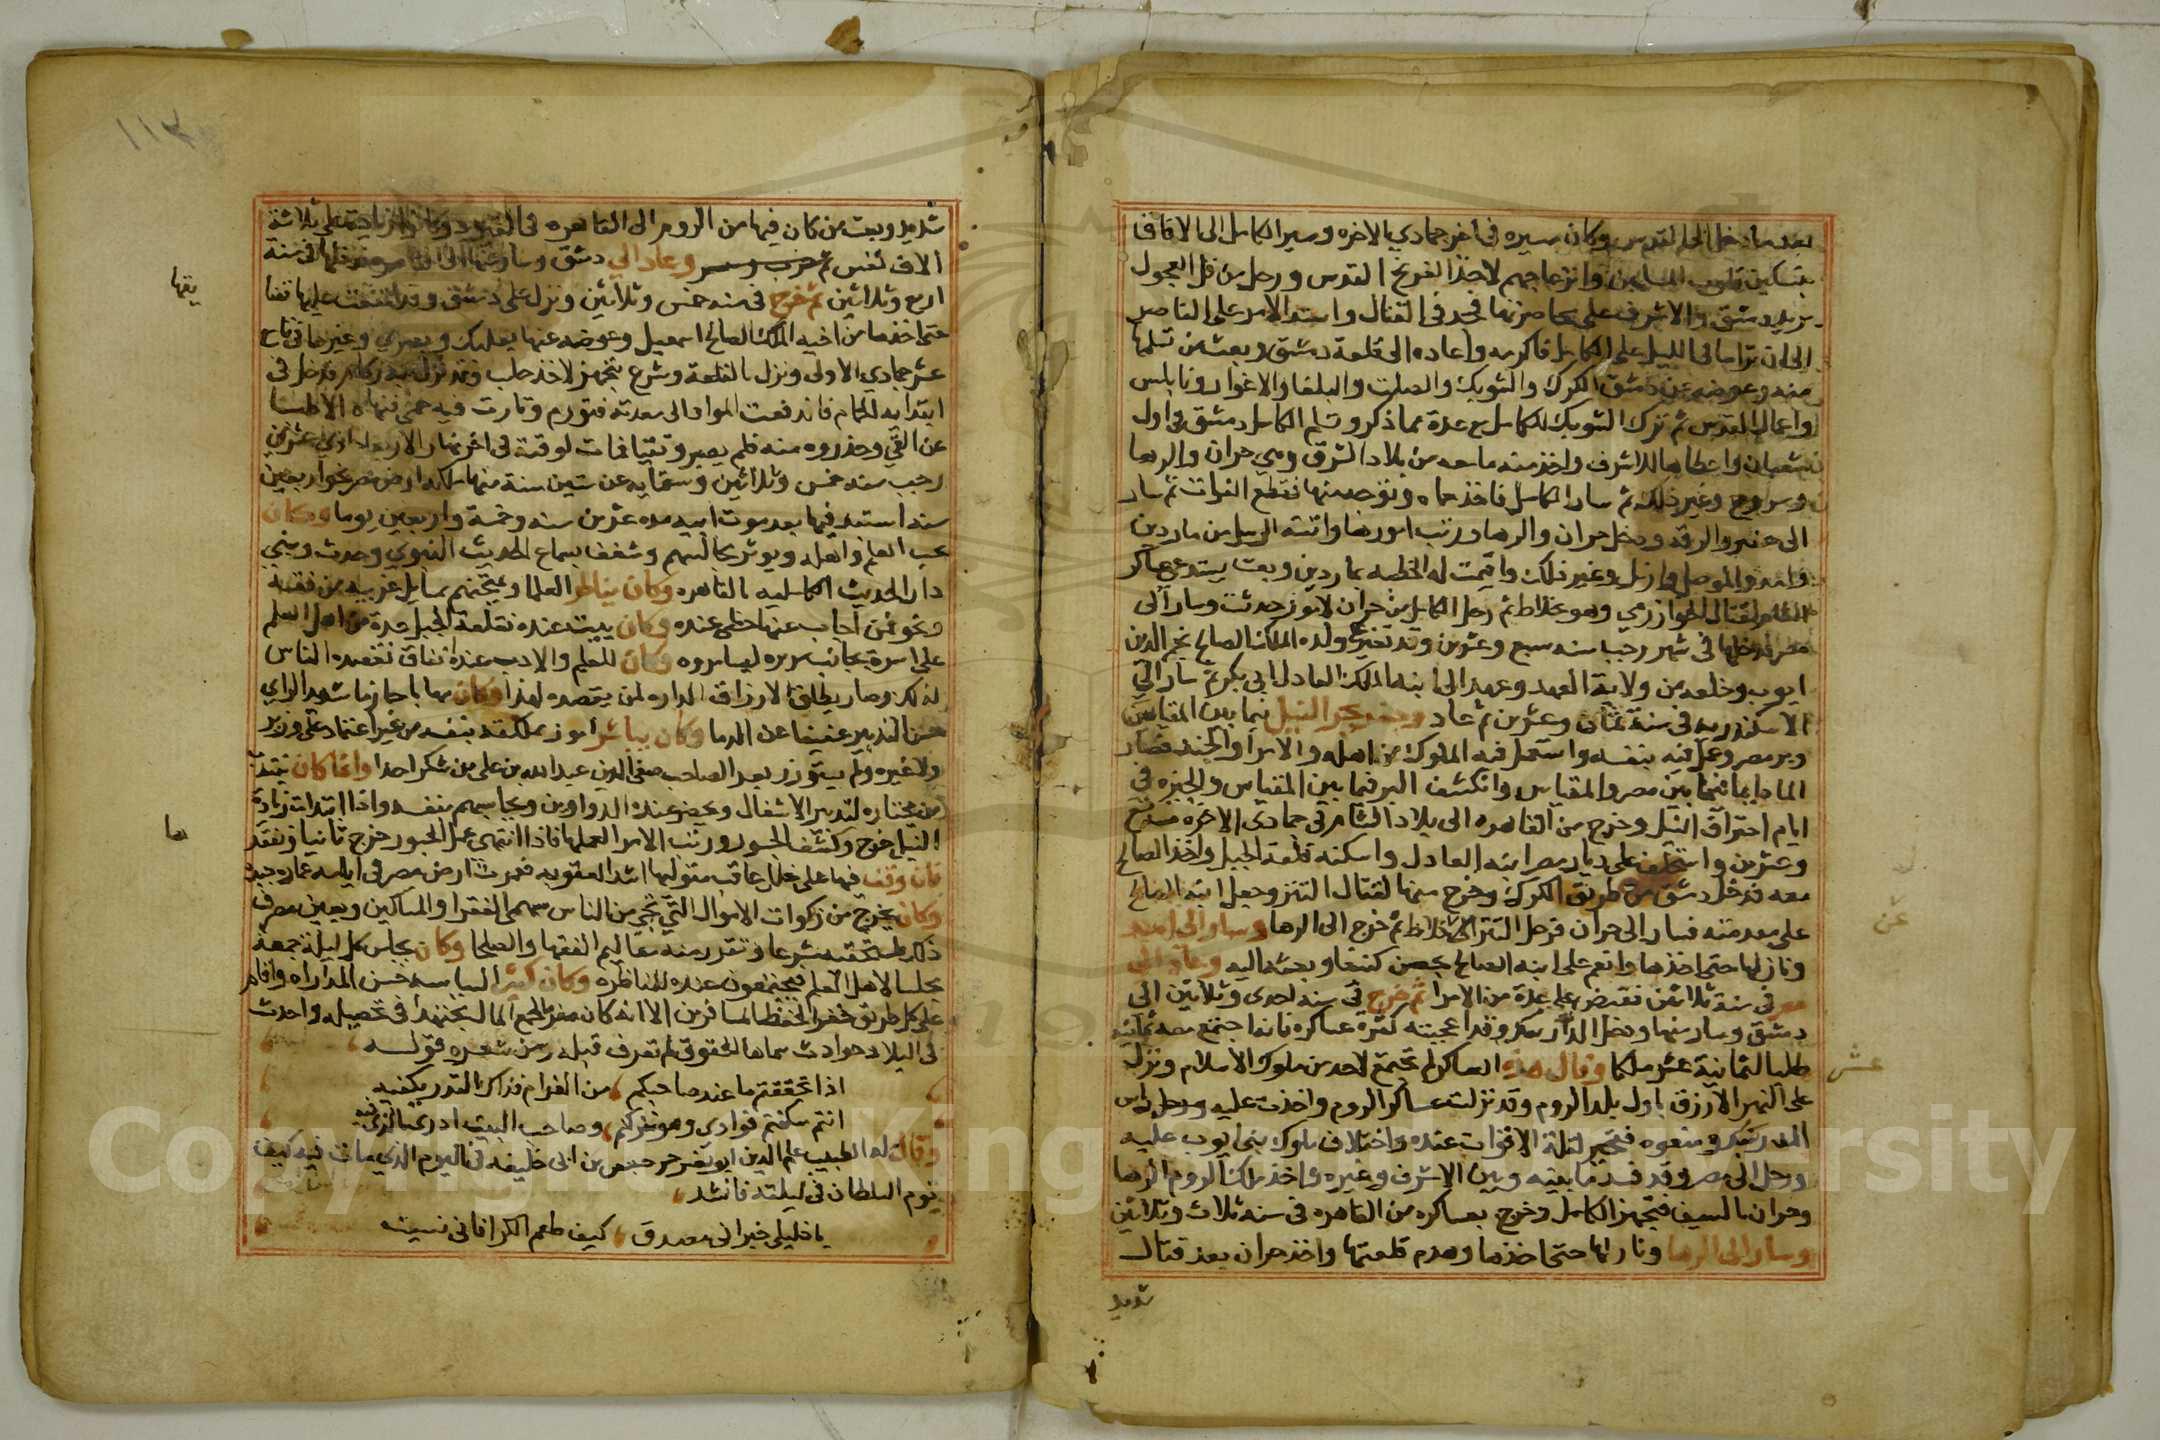 بعد ما دخل الى القدس وكان مسيره في اخر جمادي الاخره وسير الكامل الى الافاق
بتسكين قلوب المسلمين وانزعاجهم لاخذ الفرنج القدس ورحل من تل العجول
يريد دمشق والاشرف على محاصرتها فجد في القتال واشتد الامر على الناصر
الى ان ترامى في الليل على الكامل فاكرمه واعاده الى قلعة دمشق وبعث من تسلمها
منه وعوضه عن دمشق الكرك والشوبك والصلت والبلقا والاغوار ونابلس
واعمال القدس ثم ترك الشوبك للكامل مع عدة مما ذكر وتسلم الكامل دمشق في اول
شعبان واعطاها للاشرف واخذ منه ما معه من بلاد الشرق وهي حران والرها
وسروج وغير ذلك ثم سار الكامل فاخذ حماه وتوجه منها فقطع الفرات ثم سار
الى جعبر والرقة ودخل حران والرها ورتب امورها واتته الرسل من ماردين
وامد والموصل واربل وغير ذلك واقيمت له الخطبه بماردين وبعث يستدعي عساكر
الشام لقتال الخوارزمي وهو بخلاط ثم رحل الكامل من حران لامور حدثت وسار الى
مصر فدخلها في شهر رجب سنه سبع وعشرين وقد تغير على ولده الملك الصالح نجم الدين
ايوب وخلعه من ولاية العهد وعهد الى ابنه الملك العادل ابي بكر ثم سار الى
الاسكندريه في سنة ثمان وعشرين ثم عاد وحفر بحر النيل فيما بين المقياس
وبر مصر وعمل فيه بنفسه واستعمل فيه الملوك من اهله والامرا والجند فصار
الما دايما فيما بين مصر والمقياس وانكشف البر فيما بين المقياس والجيزه في
ايام احتراق النيل وخرج من القاهره الى بلاد الشام في جمادى الاخرة سنة تسع
وعشرين واستخلف على ديار مصر ابنه العادل واسكنه قلعة الجبل واخذ الصالح
معه فدخل دمشق من طريق الكرك وخرج منها لقتال التتر وجعل ابنه الصالح
على مقدمته فسار الى حران فرحل التتر الى خلاط ثم خرج الى الرها وسار الى امد
ونازلها حتى اخذها وانعم على ابنه الصالح بحصن كيفا وبعثه اليه وعاد الى
مصر في سنة ثلاثين فقبض على عدة من الامرا ثم خرج في سنه احدى وثلاثين الى
دمشق وسار منها ودخل الدربند وقد اعجبته كثرة عساكره فانه اجتمع معه ثمانية
عشر
طلبا لثمانية عشر ملكا وقال هذه العساكر لم تجتمع لاحد من ملوك الاسلام ونزل
على النهر الازرق باول بلد الروم وقد نزلت عساكر الروم واخذت عليه راس
الدربند ومنعوه فتحير لقلة الاقوات عنده واختلاف ملوك بني ايوب عليه
ورحل الى مصر وقد فسد ما بينه وبين الاشرف وغيره واخذ ملك الروم الرها
وحران بالسيف فتجهز الكامل وخرج بعساكره من القاهره في سنه ثلاث وثلاثين
وسار الى الرها ونازلها حتى اخذها وهدم قلعتها واخذ حران بعد قتال
شديد
١١٣
شديد وبعث من كان فيها من الروم الى القاهره في القيود وكانوا زيادة على ثلاثة
الاف نفس وعاد الى دمشق وسار عنها الى القاهره فدخلها في سنة
اربع وثلاثين ثم خرج في سنه خمس وثلاثين ونزل على دمشق وقد امتنعت عليه
حتى اخذها من اخيه الملك الصالح اسمعيل وعوضه عنها بعلبك وبصري وغيرها في تاسع
عشر جمادي الاولى ونزل بالقلعة وشرع يتجهز لاخذ حلب وقد نزل به زكام فدخل في
ابتدايه الحمام فاندفعت المواد الى معدته فتورم وثارت فيه حمى فنهاه الاطبا
عن القي وحذروه منه فلم يصبر وتقيا فمات لوقته في اخر نهار الاربعا حادي عشرين
رجب سنه خمس وثلاثين وستمايه عن ستين سنة منها ملكه ارض مصر نحو اربعين
سنه استبد فيها بعد موت ابيه مده عشرين سنه وخمسة واربعين يوما وكان
يحب العلم واهله ويوثر مجالستهم وشغف بسماع الحديث النبوي وحدث وبني
دار الحديث الكامليه بالقاهره وكان يناظر العلما ويمتحنهم بمسايل غريبه من فقه
ونحو فمن اجاب عنها حظى عنده وكان يبيت عنده بقلعة الجبل عدة من اهل العلم
على اسرة بجانب سريره ليسامروه وكان للعلم والادب عنده نفاق فقصده الناس
لذلك وصار يطلق الارزاق الداره لمن يقصده لهذا وكان مهابا حازما شديد الراي
حسن التدبير عفيفا عن الدما وكان يباشر امور مملكته بنفسه من غير اعتماد على وزير
ولا غيره ولم يستوزر بعد الصاحب صفي الدين عبد الله بن علي بن شكر احدا وانما كان ينتدب
من يختاره لتدبير الاشغال ويحضر عنده الدواوين ويحاسبهم بنفسه واذا ابتدات زيادة
النيل خرج وكشف الجسور ورتب الامرا لعملها فاذا انتهى عمل الجسور خرج ثانيا وتفقد
ها
فان وقف فيها على خلل عاقب متوليها اشد العقوبه فعمرت ارض مصر في ايامه عماره جيده
وكان يخرج من زكوات الاموال التي تجي من الناس سهمي الفقرا والمساكين ويعين مصرف
ذلك لمستحقيه شرعا وتقرر منه معاليم الفقها والصلحا وكان يجلس كل ليلة جمعة
مجلسا لاهل العلم فيجتمعون عنده للمناظره وكان كثير السياسه حسن المداراه واقام
على كل طريق خفرا لحفظ المسافرين الا انه كان مغرى بجمع المال مجتهدا في تحصيله واحدث
في البلاد حوادث سماها الحقوق لم تعرف قبله ومن شعره قوله
اذا تحققتم ما عند صاحبكم من الغرام فذاك القدر يكفيه
انتم سكنتم فوادي وهو منزلكم وصاحب البيت ادري بالذي فيه
وقال له الطبيب علم الدين ابو نصر جرجس بن ابي خليفه في اليوم الذي مات فيه كيف
نوم السلطان في ليلته فانشد
يا خليلي خبراني بصدق كيف طعم الكرا فاني نسيته
Copyright © King University